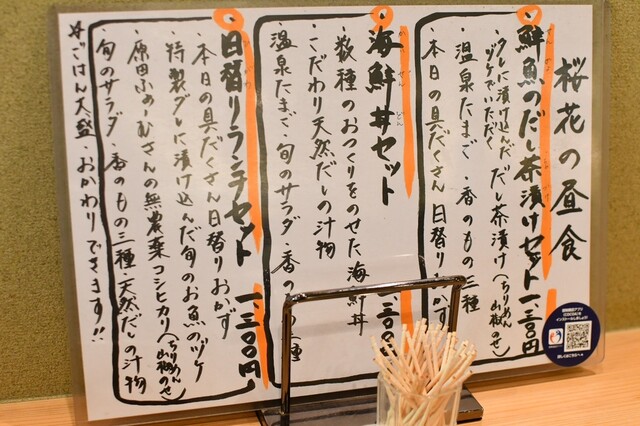 桜花の昼食
鮮魚のだし茶漬けセット 一、三〇〇円
・タレに漬け込んだ だし茶漬け(ちりめん山椒のせ)
づけでいただく
・温泉たまご ・香のもの三種
・本日の具だくさん 日替りおかず
海鮮丼セット 一、三〇〇円
かいせんどん
・数種のおつくりをのせた海鮮丼
・こだわり天然だしの汁物
・温泉たまご・旬のサラダ・香の 種
日替りランチセット 一、三〇〇円
・本日の具だくさん日替りおかず
・特製ダレに漬け込んだ旬のお魚のヅケ
・原田ふぁーむさんの無農薬コシヒカリ(ちりめん山椒のせ)
・旬のサラダ・香のもの三種・天然だしの汁物
※ごはん大盛・おかわりできます!!